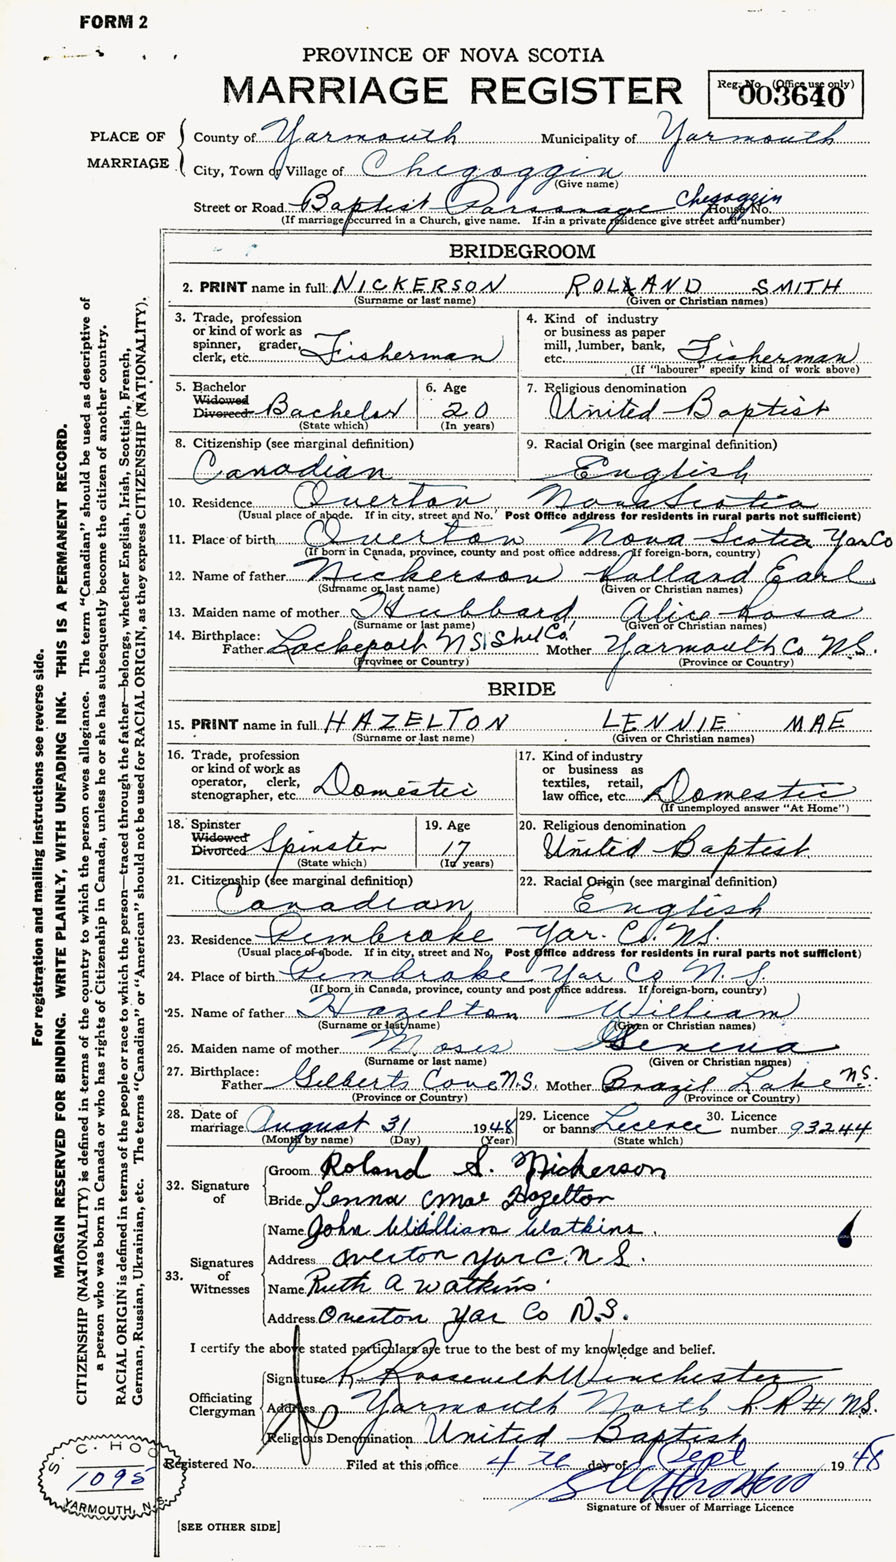 FORM 2
PROVINCE OF NOVA SCOTIA
MARRIAGE REGISTER
Reg. No. (Office use only)
003640
PLACE OF MARRIAGE
County of Yarmouth Municipality of Yarmouth
City, Town or Village of Chegoggin
(Give name)
Street or Road Baptist Parsonage Chegoggin House No.
(If marriage occurred in a Church, give name. If in a private residence give street and number)
BRIDEGROOM
2. PRINT name in full: NICKERSON ROLLAND SMITH
(Surname or last name) (Given or Christian names)
3. Trade, profession or kind of work as spinner, grader, clerk, etc. Fisherman
4. Kind of industry or business as paper mill, lumber, bank, etc. Fisherman
(If "labourer" specify kind of work above)
5. Bachelor Widowed Divorced Bachelor
(State which)
6. Age 20
(In years)
7. Religious denomination
United Baptist
8. Citizenship (see marginal definition)
Canadian
9. Racial Origin (see marginal definition)
English
10. Residence Overton Nova Scotia
(Usual place of abode. If in city, street and No. Post Office address for residents in rural parts not sufficient)
11. Place of birth Overton Nova Scotia Yar Co
(If born in Canada, province, county and post office address. If foreign-born, country)
12. Name of father Nickerson Holland Earl
(Surname or last name) (Given or Christian names)
13. Maiden name of mother Hubbard Alice Rosa
(Surname or last name) (Given or Christian names)
14. Birthplace: Father Lockeport N S Shel Co. Mother Yarmouth Co. N.S.
(Province or Country) (Province or Country)
BRIDE
15. PRINT name in full HAZELTON LENNIE MAE
(Surname or last name) (Given or Christian names)
16. Trade, profession or kind of work as operator, clerk, stenographer, etc. Domestic
17. Kind of industry or business as textiles, retail, law office, etc. Domestic
(If unemployed answer "At Home")
18. Spinster Widowed Divorced Spinster
(State which)
19. Age 17
(In years)
20. Religious denomination
United Baptist
21. Citizenship (see marginal definition)
Canadian
22. Racial Origin (see marginal definition)
English
23. Residence Pembroke Yar. Co. N.S.
(Usual place of abode. If in city, street and No. Post Office address for residents in rural parts not sufficient)
24. Place of birth Pembroke Yar Co N.S.
(If born in Canada, province, county and post office address. If foreign-born, country)
25. Name of father Hazelton William
(Surname or last name) (Given or Christian names)
26. Maiden name of mother Moses Geneva
(Surname or last name) (Given or Christian names)
27. Birthplace: Father Gilberts Cove N.S. Mother Brazil Lake N.S.
(Province or Country) (Province or Country)
28. Date of marriage August 31 1948
(Month by name) (Day) (Year)
29. Licence or banns Licence
(State which)
30. Licence number 93244
32. Signature of
Groom Roland S. Nickerson
Bride Lenna Mae Hazelton
33. Signatures of Witnesses
Name John William Watkins.
Address Overton Yar C. N S.
Name Ruth A Watkins
Address Overton Yar Co N.S.
I certify the above stated particulars are true to the best of my knowledge and belief.
Officiating Clergyman
Signature R Roosevelt Winchester
Address Yarmouth North R.R #1 N.S.
Religious Denomination United Baptist
Registered No. Filed at this office 4 th day of Sept 1948
Signature of Issuer of Marriage Licence
[SEE OTHER SIDE]
S. C. HOOD
1095
YARMOUTH, N.S.
For registration and mailing instructions see reverse side.
MARGIN RESERVED FOR BINDING. WRITE PLAINLY, WITH UNFADING INK. THIS IS A PERMANENT RECORD.
CITIZENSHIP (NATIONALITY) is defined in terms of the country to which the person owes allegiance. The term "Canadian" should be used as descriptive of
a person who was born in Canada or who has rights of Citizenship in Canada, unless he or she has subsequently become the citizen of another country.
RACIAL ORIGIN is defined in terms of the people or race to which the person—traced through the father—belongs, whether English, Irish, Scottish, French,
German, Russian, Ukrainian, etc. The terms "Canadian" or "American" should not be used for RACIAL ORIGIN, as they express CITIZENSHIP (NATIONALITY).